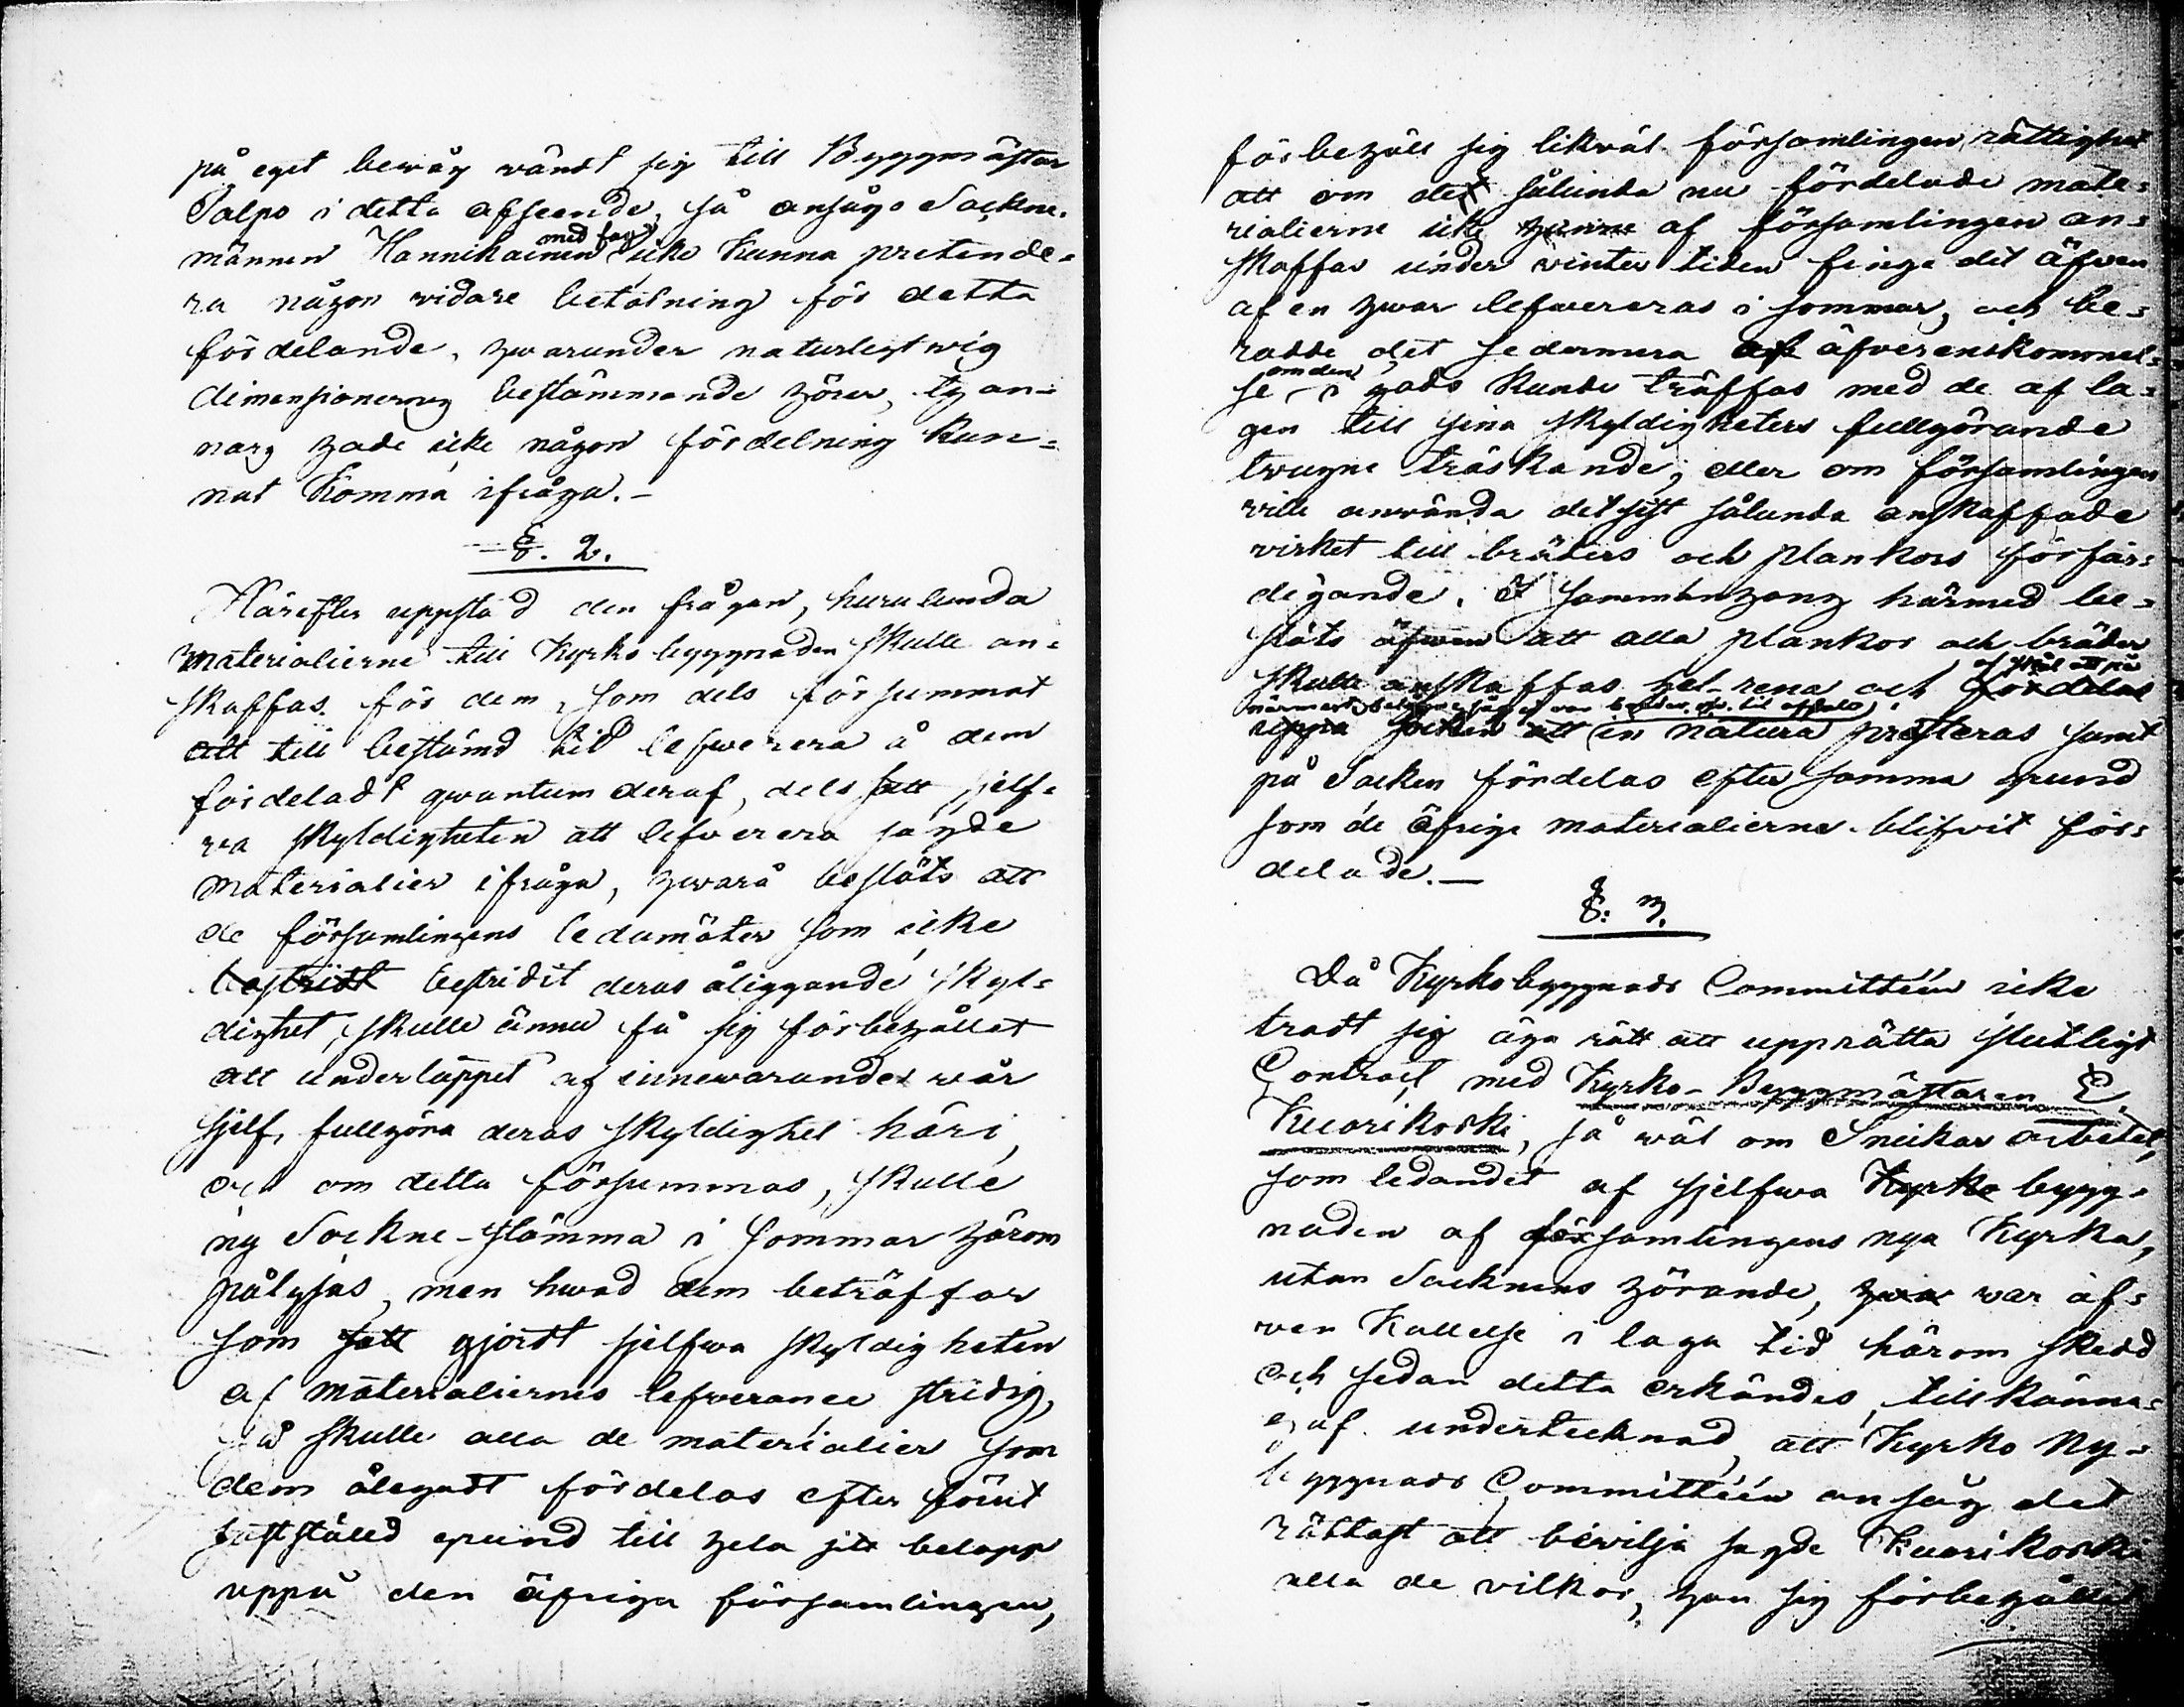 på eget bewåg vändt sig till Byggmästar
Salpo i detta afseende, så ansågo Sockne-
männen Hannikainen med fog icke kunna pretende-
ra någon vidare betalning för detta
fördelande, hwarunder naturligtwis
dimensionernes bestämmande hörer, ty an-
nars hade icke någon fördelning kun-
nat komma ifråga.-
§. 2.
Härefter uppstod den frågan, hurulunda
materialierne till Kyrko byggnaden skulle an-
skaffas för dem, som dels försummat
att till bestämd tid lefwerera å dem
fördeladt qwantum deraf, dels satt sjelf-
va skyldigheten att lefverera sagde
materialier ifråga, hwarå beslöts att
de församlingens ledamöter som icke
bestridt bestridit deras åliggande skyl-
dighet, skulle ännu få sig förbehållet
att under loppet af innewarande wår
sjelf, fullgöra deras skyldighet häri,
och om detta försummas, skulle
ny Sockne-stämma i sommar härom
pålysas, men hwad dem beträffar
som satt gjordt sjelfwa skyldigheten
af materialiernes lefverance stridig,
så skulle alla de materialier som
dem ålegadt fördelas efter förut
fastställd grund till hela sitt belopp
uppå den öfriga församlingen,
förbehöll sig likväl församlingen rättighet
att om det sålunda nu fördelade mate-
rialierne icke hunne af församlingen an-
skaffas under winter tiden finge det äfwen
af en hwar lefwereras i sommar, och be-
rodde det sedermera af öfverenskommel-
se om den i gods kunde träffas med de af la-
gen till sina skyldigheters fullgörande
twugne tråskande, eller om församlingen
ville använda det sist sålunda anskaffade
virket till bräders och plankors förfär-
digande. I sammanhang härmed be-
slöts äfwen att alla plankor och bräder
skulle anskaffas hel-rena och fördelas af skäl att på
närmast belägne
uppå socken att in natura presteras samt
på Socken fördelas efter samma grund
som de öfriga materialierne blifvit för-
delade.—
§. 3.
Då Kyrkobyggnads Committéen icke
trodt sig äga rätt att upprätta slutligt
Contract med Kyrko-Byggmästaren E.
Kuorikoski, så wäl om Snickar arbetet,
som ledandet af sjelfwa Kyrko bygg-
naden af församlingens nya Kyrka,
utan Socknens hörande, hwar var äf-
ven Kallelse i laga tid härom skedd
och sedan detta erkändes, tillkänna-
gaf undertecknad, att Kyrko Ny-
byggnads Committéen ansåg det
rättast att bevilja sagde Kuorikoski
alla de vilkor, han sig förbehållit